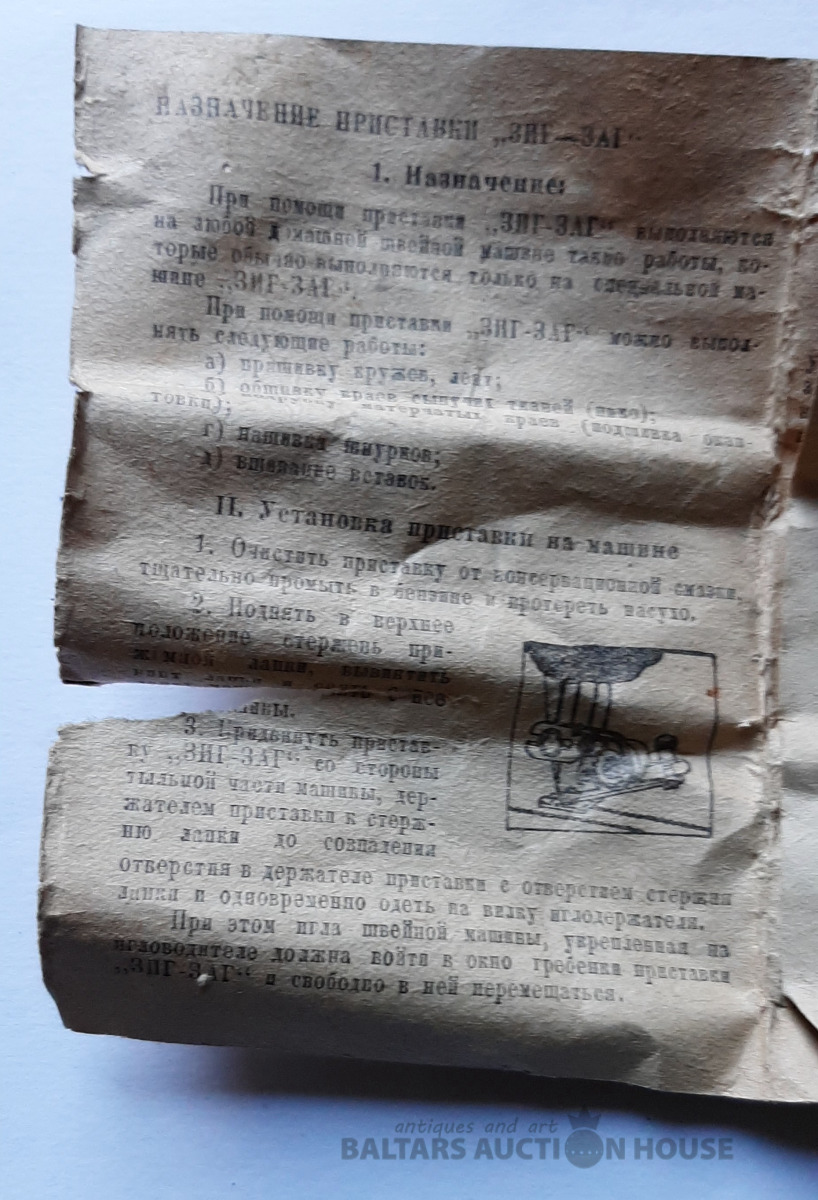 НАЗНАЧЕНИЕ ПРИСТАВКИ „ЗИГ—ЗАГ“
1. Назначение:
При помощи приставки „ЗИГ-ЗАГ“ выполняются
на любой домашней швейной машине такие работы, ко-
торые обычно выполняются только на специальной ма-
шине „ЗИГ-ЗАГ“.
При помощи приставки „ЗИГ-ЗАГ“ можно выпол-
нять следующие работы:
а) пришивку кружев, лент;
б) обшивку краев сыпучих тканей
краев (подшивка окан-
товки);
г) нашивка шнурков;
д) вшивание вставок.
II. Установка приставки на машине
1. Очистить приставку от консервационной смазки,
тщательно промыть в бензине и протереть насухо.
2. Поднять в верхнее
положение стержень при-
жимной лапки, вывинтить
3. Придвинуть пристав-
ку „ЗИГ-ЗАГ“ со стороны
тыльной части машины, дер-
жателем приставки к стерж-
ню лапки до совпадения
отверстия в держателе приставки с отверстием стержня
лапки и одновременно одеть на вилку иглодержателя.
При этом игла швейной машины, укрепленная на
игловодителе должна войти в окно гребенки приставки
„ЗИГ-ЗАГ“ и свободно в ней перемещаться.
antiques and art
BALTARS AUCTION HOUSE